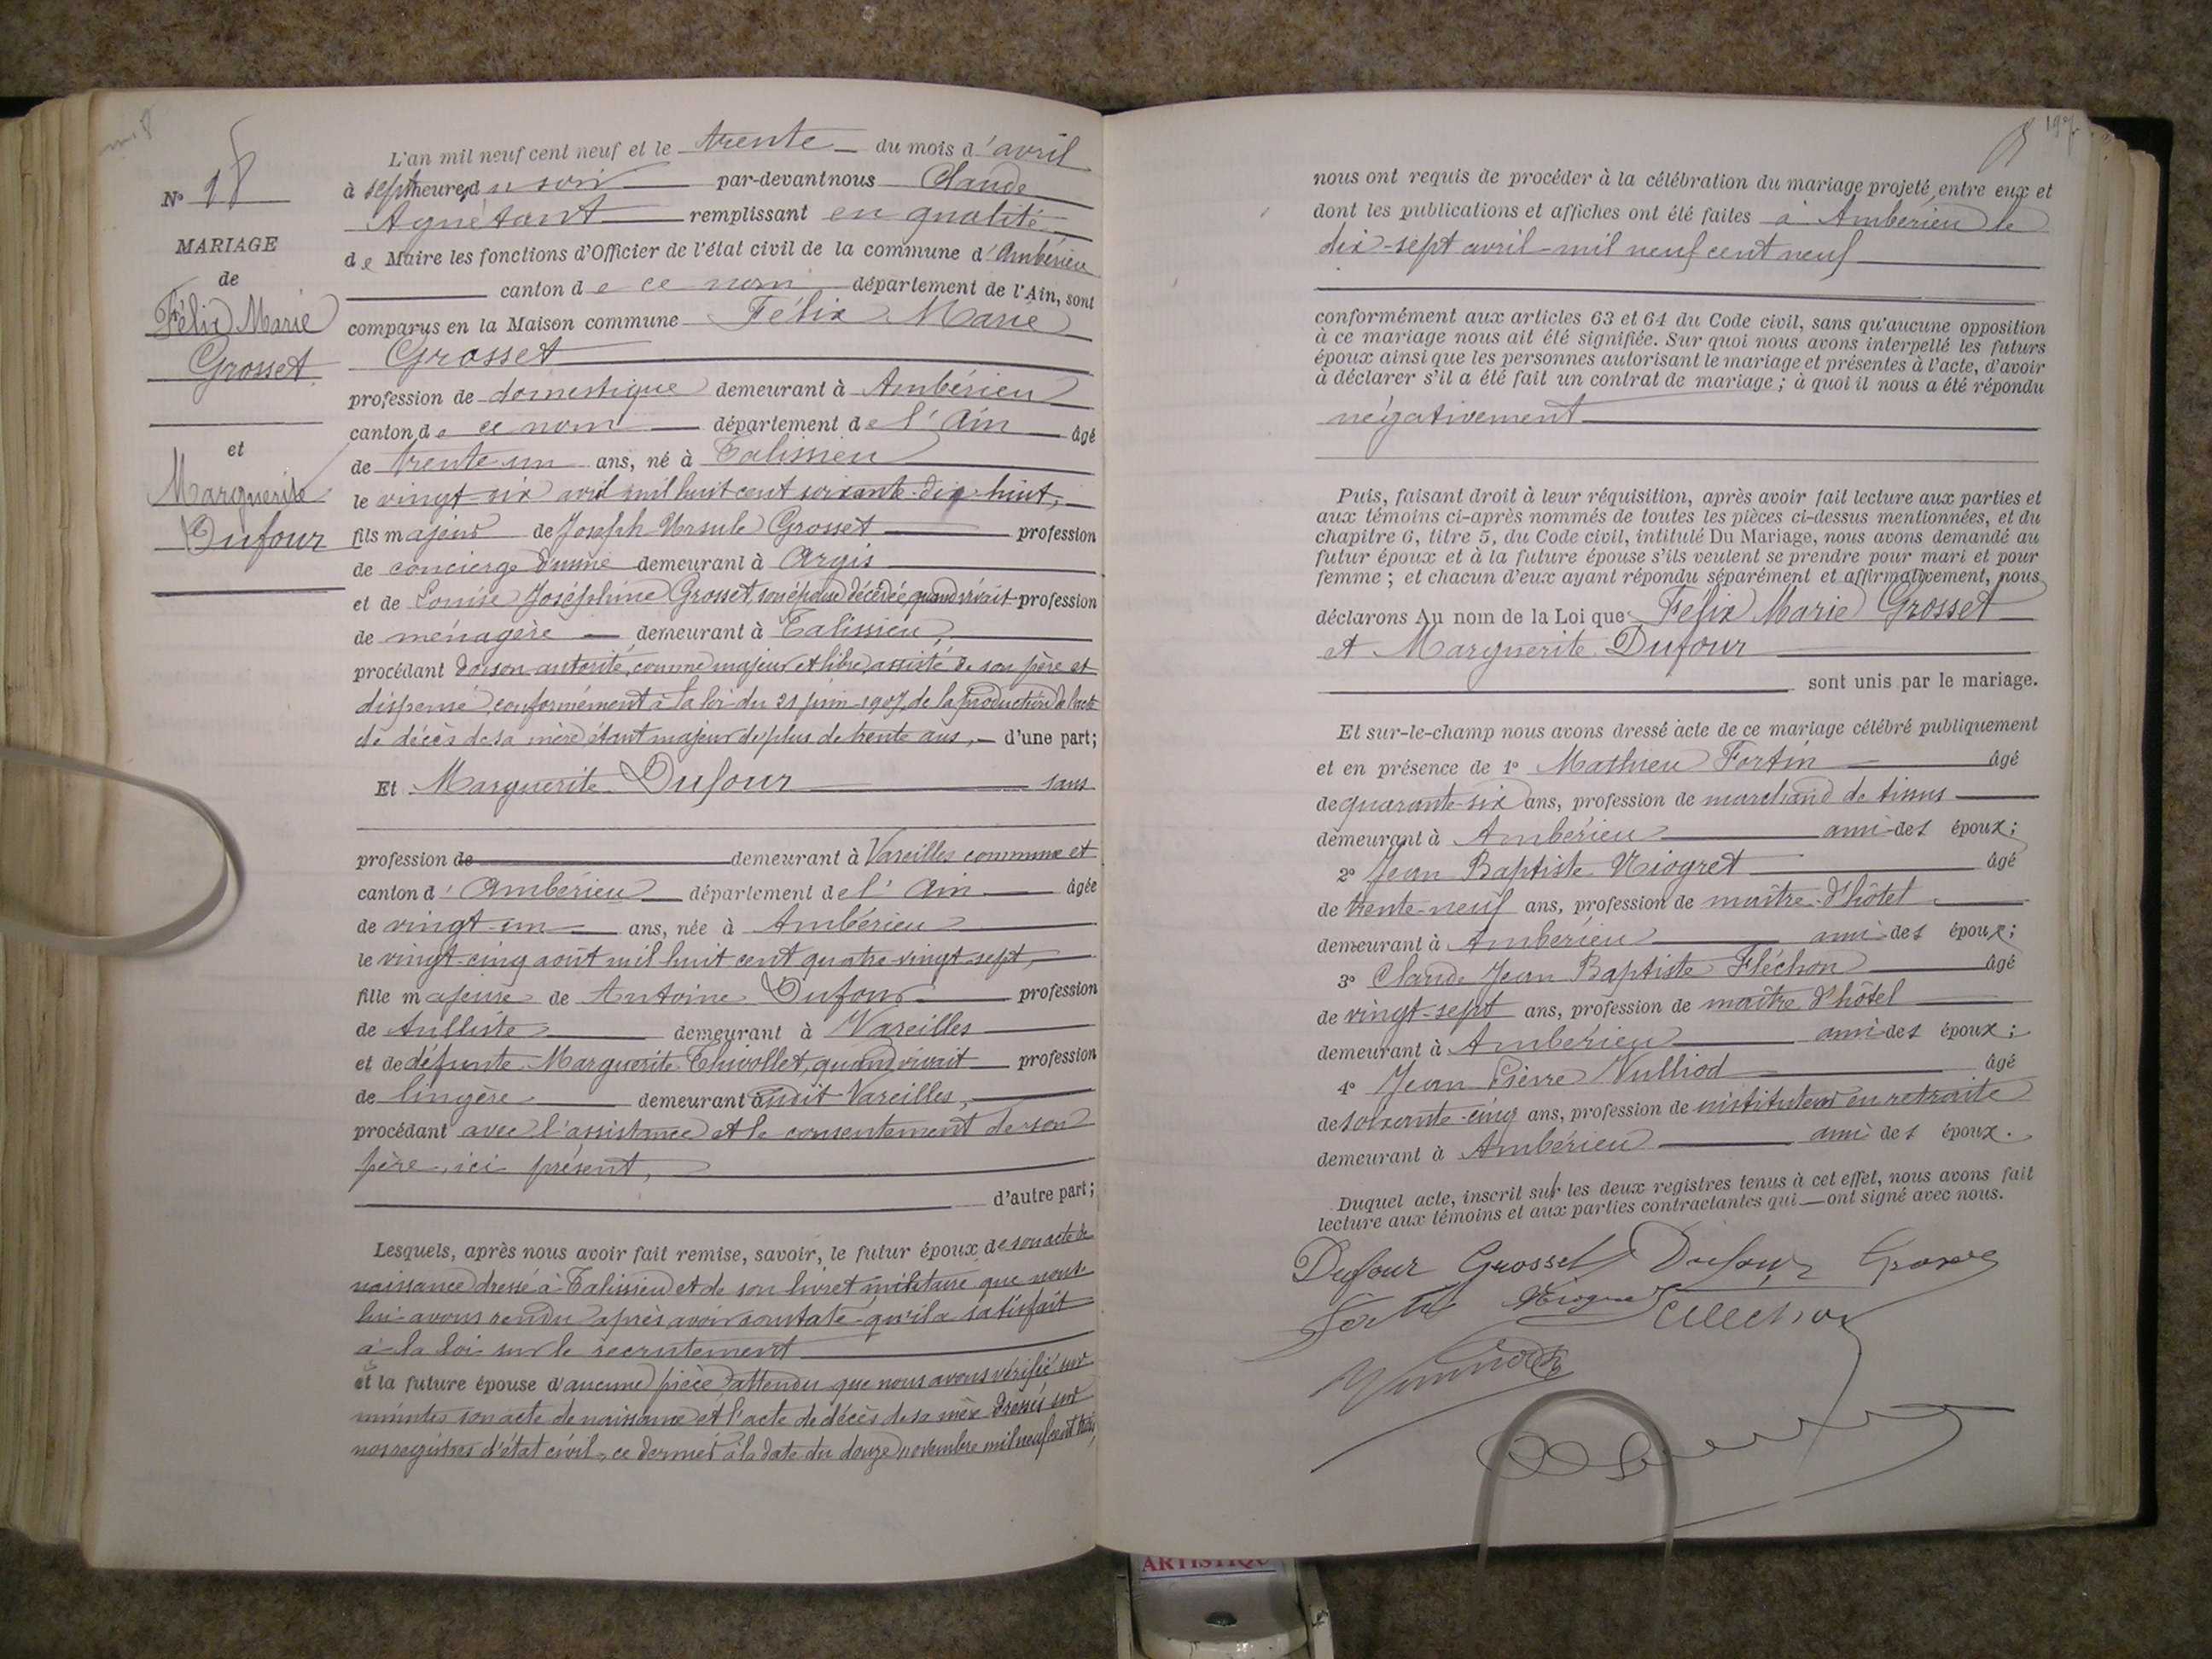 N° 18
MARIAGE
de
Félix Marie
Grosset
et
Marguerite
Dufour
L'an mil neuf cent neuf et le trente du mois d'avril
à sept heures du soir par-devant nous Claude
Agnétant remplissant en qualité
de Maire les fonctions d'Officier de l'état civil de la commune d'Ambérieu
canton de ce nom département de l'Ain, sont
comparus en la Maison commune Félix Marie
Grosset
profession de domestique demeurant à Ambérieu
canton de ce nom département de l'Ain âgé
de trente-un ans, né à Talissieu
le vingt-six avril mil huit cent soixante-dix-huit,
fils majeur de Joseph Ursule Grosset profession
de concierge d'usine demeurant à Argis
et de Louise Joséphine Grosset, son épouse décédée, quand vivait profession
de ménagère demeurant à Talissieu,
procédant de son autorité, comme majeur et libre, assisté de son père et
dispensé, conformément à la loi du 21 juin 1907, de la production de l'acte
de décès de sa mère, étant majeur de plus de trente ans, d'une part;
Et Marguerite Dufour sans
profession de demeurant à Vareilles commune et
canton d'Ambérieu département de l'Ain âgée
de vingt-un ans, née à Ambérieu
le vingt-cinq août mil huit cent quatre-vingt-sept,
fille majeure de Antoine Dufour profession
de tulliste demeurant à Vareilles
et de défunte Marguerite Thivollet, quand vivait profession
de lingère demeurant audit Vareilles,
procédant avec l'assistance et le consentement de son
père, ici présent,
d'autre part;
Lesquels, après nous avoir fait remise, savoir, le futur époux de son acte de
naissance dressé à Talissieu et de son livret militaire que nous
lui avons rendu après avoir constaté qu'il a satisfait
à la loi sur le recrutement
et la future épouse d'aucune pièce attendu que nous avons vérifié sur
minutes son acte de naissance et l'acte de décès de sa mère dressés sur
nos registres d'état civil, ce dernier à la date du douze novembre mil neuf cent trois,
197
nous ont requis de procéder à la célébration du mariage projeté entre eux et
dont les publications et affiches ont été faites à Ambérieu le
dix-sept avril mil neuf cent neuf
conformément aux articles 63 et 64 du Code civil, sans qu'aucune opposition
à ce mariage nous ait été signifiée. Sur quoi nous avons interpellé les futurs
époux ainsi que les personnes autorisant le mariage et présentes à l'acte, d'avoir
à déclarer s'il a été fait un contrat de mariage; à quoi il nous a été répondu
négativement
Puis, faisant droit à leur réquisition, après avoir fait lecture aux parties et
aux témoins ci-après nommés de toutes les pièces ci-dessus mentionnées, et du
chapitre 6, titre 5, du Code civil, intitulé Du Mariage, nous avons demandé au
futur époux et à la future épouse s'ils veulent se prendre pour mari et pour
femme; et chacun d'eux ayant répondu séparément et affirmativement, nous
déclarons Au nom de la Loi que Félix Marie Grosset
et Marguerite Dufour
sont unis par le mariage.
Et sur-le-champ nous avons dressé acte de ce mariage célébré publiquement
et en présence de 1° Mathieu Fortin âgé
de quarante-six ans, profession de marchand de tissus
demeurant à Ambérieu ami des époux;
2° Jean Baptiste Niogret âgé
de trente-neuf ans, profession de maître d'hôtel
demeurant à Ambérieu ami des époux;
3° Claude Jean Baptiste Fléchon âgé
de vingt-sept ans, profession de maître d'hôtel
demeurant à Ambérieu ami des époux;
4° Jean Pierre Vulliod âgé
de soixante-cinq ans, profession de instituteur en retraite
demeurant à Ambérieu ami des époux.
Duquel acte, inscrit sur les deux registres tenus à cet effet, nous avons fait
lecture aux témoins et aux parties contractantes qui ont signé avec nous.
Dufour Grosset Dufour Grosset
Niogret Fléchon
ARTISTIQU